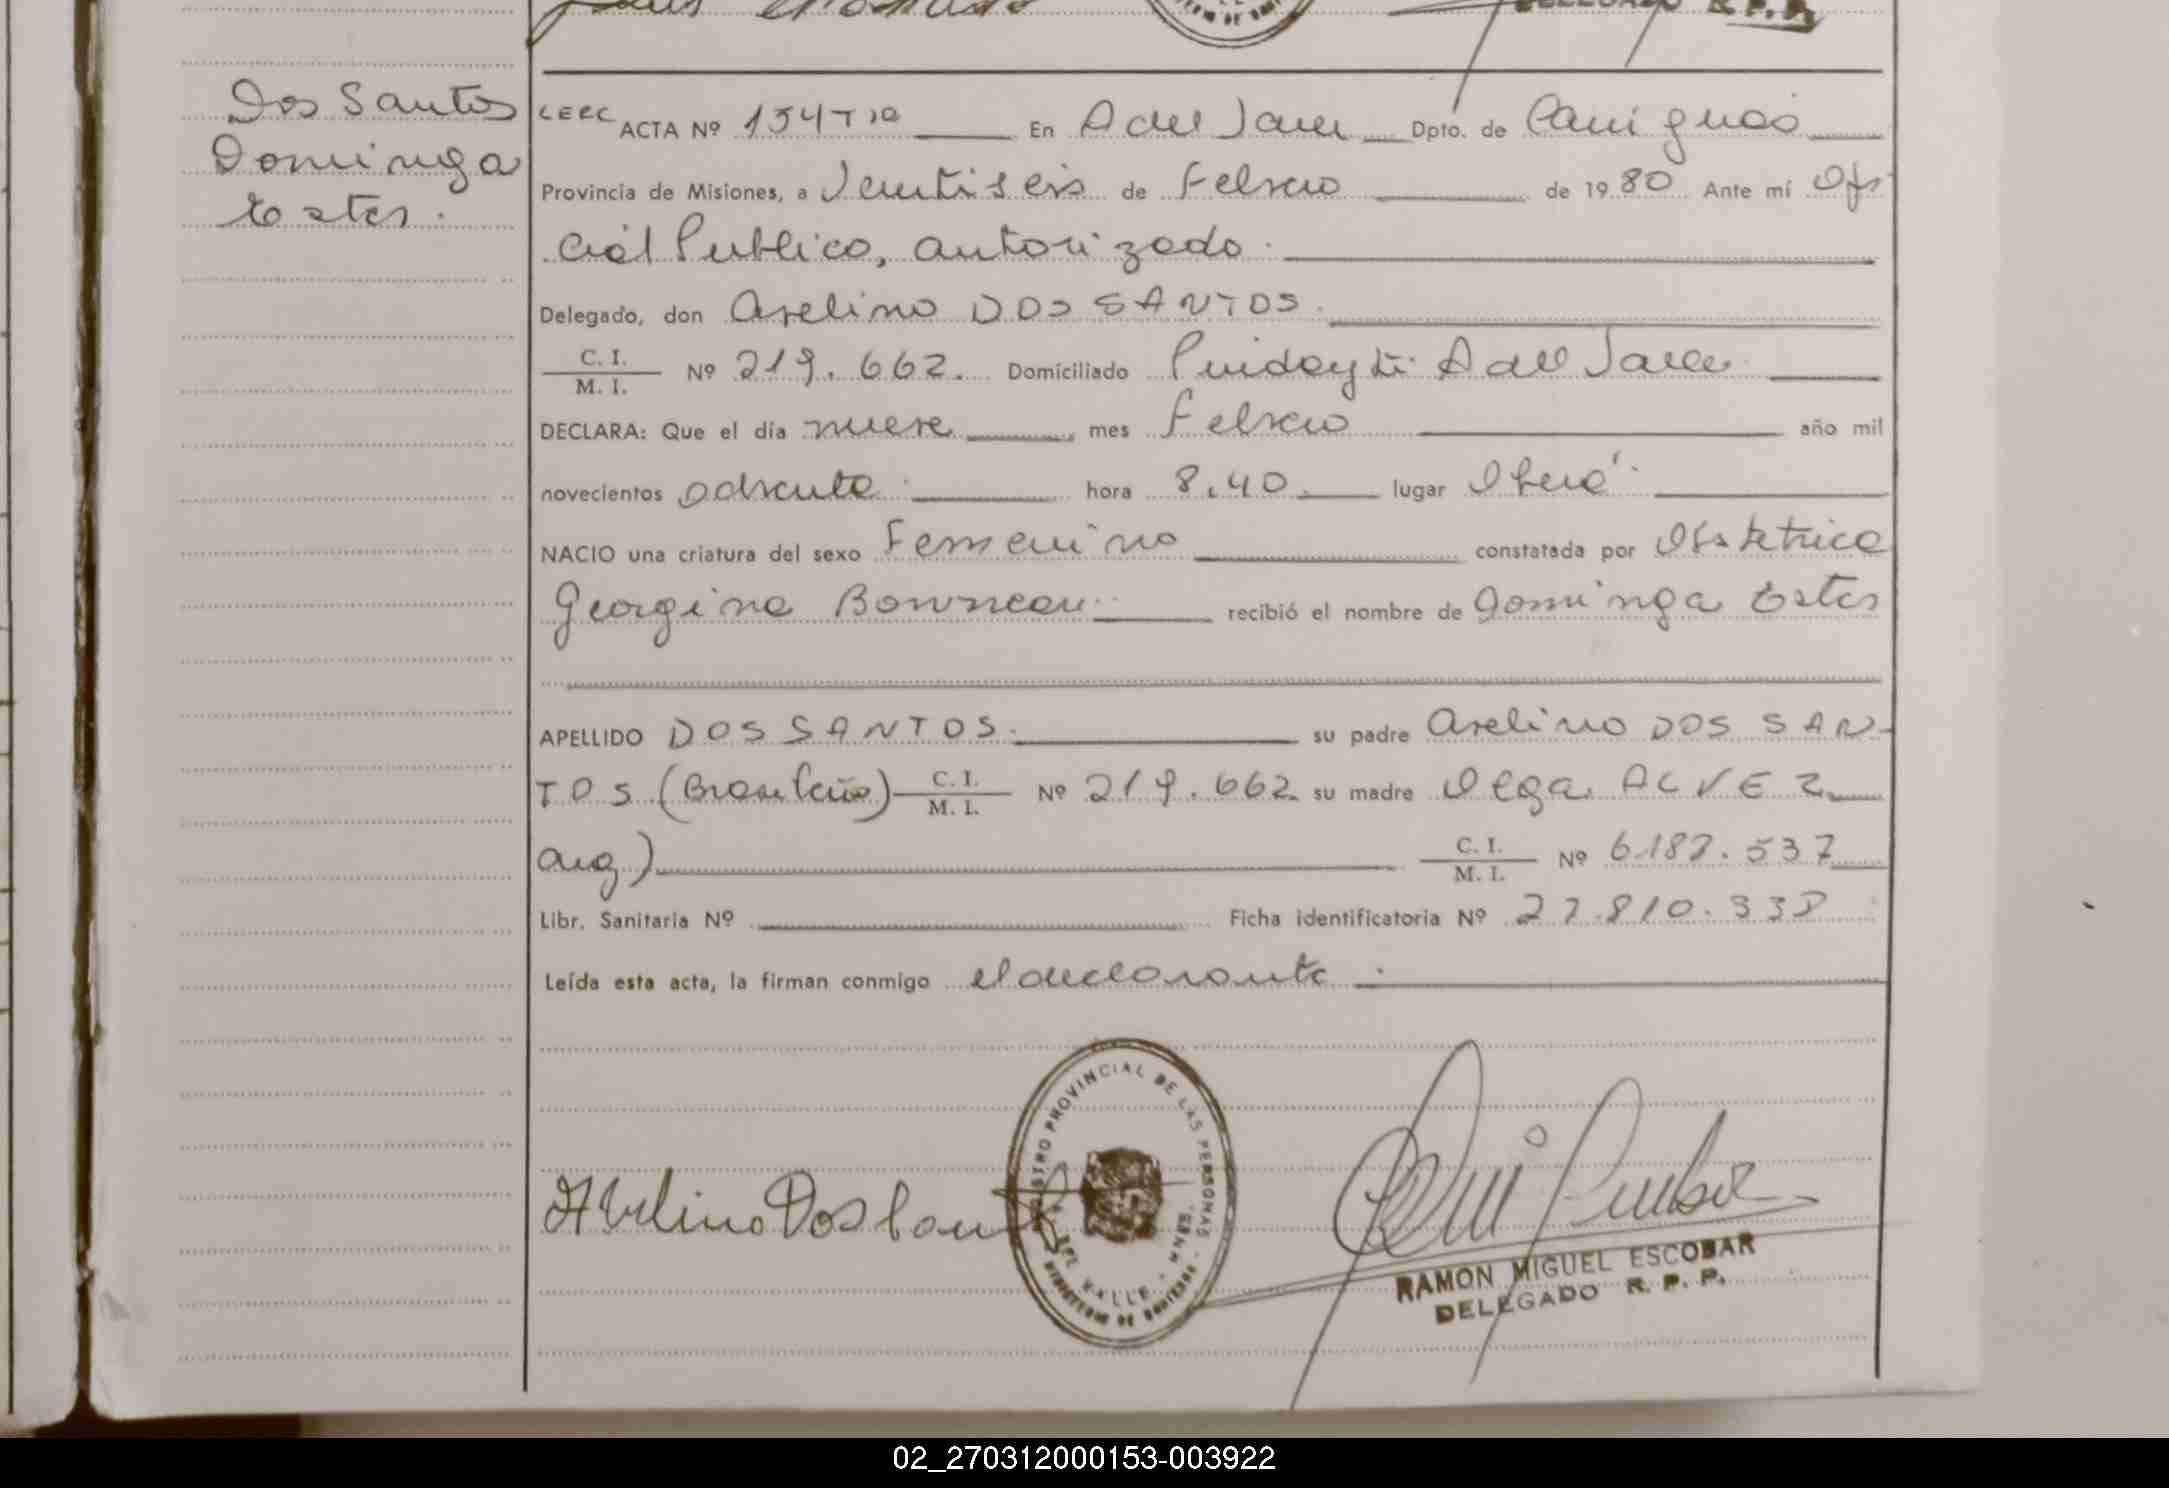 DELEGADO R. P. P.
Dos Santos
Dominga
Ester.
CERC ACTA Nº 154 T 1º En A del Valle Dpto. de Cainguás
Provincia de Misiones, a Veintiseis de Febrero de 1980 Ante mí Ofi
cial Publico, autorizado.
Delegado, don Avelino DOS SANTOS.
C. I.
M. I. Nº 219.662. Domiciliado Pindayti A del Valle
DECLARA: Que el día nueve mes Febrero año mil
novecientos ochenta hora 8,40 lugar Oberá
NACIO una criatura del sexo Femenino constatada por Obstetrica
Georgina recibió el nombre de Dominga Ester
APELLIDO DOS SANTOS. su padre Avelino DOS SAN-
TOS (Brasileño) C. I. M. I. Nº 219.662 su madre Olga ALVEZ
arg) C. I. M. I. Nº 6.187.537
Libr. Sanitaria Nº Ficha identificatoria Nº 27.810.338
Leída esta acta, la firman conmigo el declarante.
Avelino Dos San
REGISTRO PROVINCIAL DE LAS PERSONAS
DEL VALLE - MNES.
RAMON MIGUEL ESCOBAR
DELEGADO R. P. P.
02_270312000153-003922